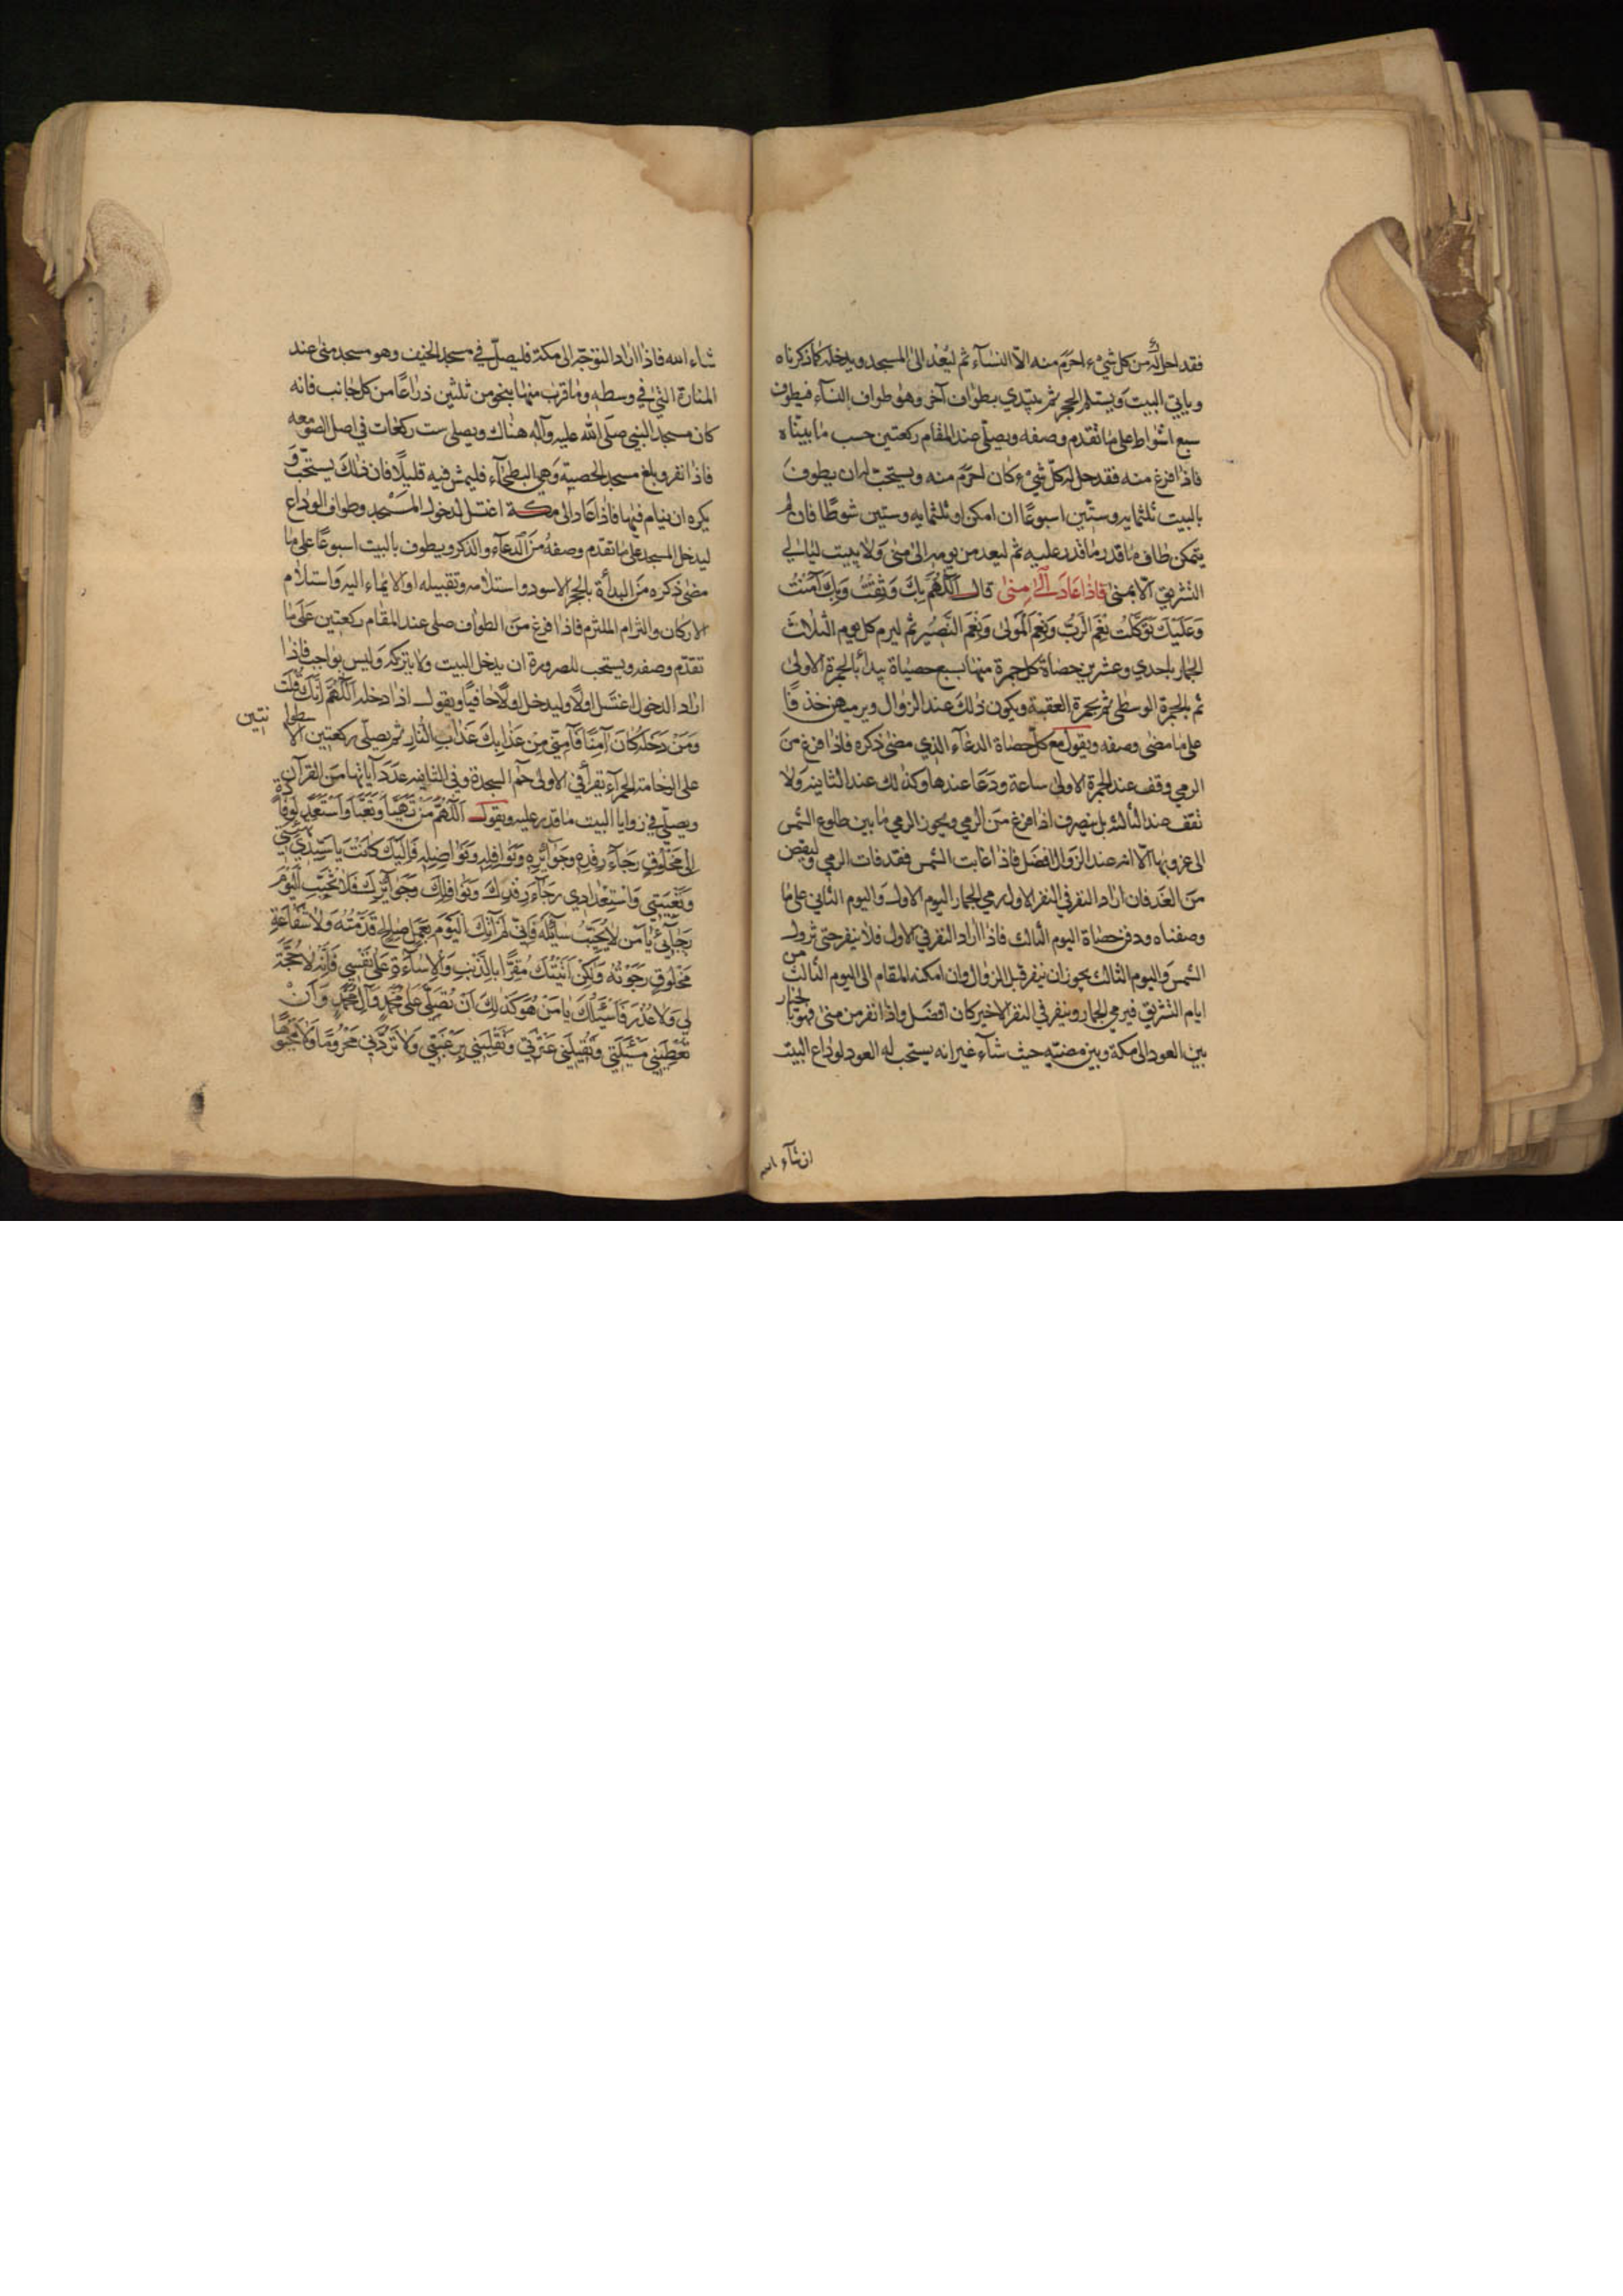 فقد احل له من كل شيء احرم منه الا النساء ثم ليعد الى المسجد ويدخله كما ذكرناه
وياتي البيت ويستلم الحجر ثم يبتدي بطواف آخر وهو طواف النساء فيطوف
سبع اشواط على ما تقدم وصفه ويصلي عند المقام ركعتين حسب ما بيناه
فاذا فرغ منه فقد حل له كل شيء كان احرم منه ويستحب له ان يطوف
بالبيت ثلثمايه وستين اسبوعا ان امكن او ثلثمايه وستين شوطا فان لم
يتمكن طاف ما قدر عليه ثم ليعد من يومه الى منى ولا يبيت ليالي
التشريق الا بمنى فاذا عاد الى منى قال اَللّهُمَّ بِكَ وَثِقْتُ وَبِكَ آمَنْتُ
وَعَلَيْكَ تَوَكَّلْتُ نِعْمَ الرَّبُّ وَنِعْمَ الْمَوْلى وَنِعْمَ النَّصيرُ ثم ليرم كل يوم الثلاث
الجمار باحدي وعشرين حصاة كل جمرة منها بسبع حصياة يبدأ بالجمرة الاولى
ثم بالجمرة الوسطى ثم بجمرة العقبة ويكون ذلك عند الزوال ويرميهن خذفا
على ما مضى وصفه ويقول مع كل حصاة الدعاء الذي مضى ذكره فاذا فرغ من
الرمي وقف عند الجمرة الاولى ساعة ودعا عندها وكذلك عند الثانيه ولا
تقف عند الثالثه بل ينصرف اذا فرغ من الرمي ويجوز الرمي ما بين طلوع الشمس
الى غروبها الا انه عند الزوال افضل فاذا غابت الشمس فقد فات الرمي وليقض
من الغد فان اراد النفر في النفر الاول رمي الجمار اليوم الاول واليوم الثاني على ما
وصفناه ودفن حصاة اليوم الثالث فاذا اراد النفر في الاول فلا ينفر حتى تزول
الشمس واليوم الثالث يجوز ان ينفر قبل الزوال وان امكنه المقام الى اليوم الثالث من
ايام التشريق فيرمي الجمار وينفر في النفر الاخير كان افضل واذا نفر من منى فهو بالخيار
بين العود الى مكة وبين مضيه حيث شاء غير انه يستحب له العود لوداع البيت
ان شاء الله
شاء الله فاذا اراد التوجه الى مكة فليصل في مسجد الخيف وهو مسجد منى عند
المنارة التي في وسطه وما قرب منها بنحو من ثلثين ذراعا من كل جانب فانه
كان مسجد النبي صلى الله عليه وآله هناك ويصلى ست ركعات في اصل الصومعه
فاذا نفر وبلغ مسجد الحصبة وهي البطحاء فليمش فيه قليلا فان ذلك يستحب و
يكره ان ينام فيها فاذا عاد الى مكة اغتسل لدخول المسجد وطواف الوداع
ليدخل المسجد على ما تقدم وصفه من الدعاء والذكر ويطوف بالبيت اسبوعا على ما
مضى ذكره من البدأة بالحجر الاسود واستلامه وتقبيله او الايماء اليه واستلام
الاركان والتزام الملتزم فاذا فرغ من الطواف صلى عند المقام ركعتين على ما
تقدم وصفه ويستحب للصرورة ان يدخل البيت ولا يتركه وليس بواجب فاذا
اراد الدخول اغتسل اولا وليدخل حافيا ويقول اذا دخله اَللّهُمَّ اِنَّكَ قُلْتَ
وَمَنْ دَخَلَهُ كانَ آمِنًا فَآمِنّي مِنْ عَذابِكَ عَذابِ النّارِ ثم يصلي ركعتين بين الاسطوانتين
على الرخامة الحمراء يقرأ في الاولى حم السجدة وفي الثانيه عدد آياتها من القرآن
ويصلي في زوايا البيت ما قدر عليه ويقول اَللّهُمَّ مَنْ تَهَيَّأَ وَتَعَبَّأَ وَاسْتَعَدَّ لِوِفادَةٍ
اِلى مَخْلُوقٍ رَجاءَ رِفْدِهِ وَجَوائِزِهِ وَنَوافِلِهِ وَفَواضِلِهِ فَاِلَيْكَ كانَتْ يا سَيِّدي تَهْيِئَتي
وَتَعْبِئَتي وَاسْتِعْدادي رَجاءَ رِفْدِكَ وَنَوافِلِكَ وَجَوائِزِكَ فَلا تُخَيِّبِ الْيَوْمَ
رَجائي يا مَنْ لا يُخَيِّبُ سائِلَهُ فَاِنّي لَمْ آتِكَ الْيَوْمَ بِعَمَلٍ صالِحٍ قَدَّمْتُهُ وَلا شَفاعَةِ
مَخْلُوقٍ رَجَوْتُهُ وَلكِنْ اَتَيْتُكَ مُقِرًّا بِالذَّنْبِ وَالْاِساءَةِ عَلى نَفْسي فَاِنَّهُ لا حُجَّةَ
لي وَلا عُذْرَ فَاَسْئَلُكَ يا مَنْ هُوَ كَذلِكَ اَنْ تُصَلِّيَ عَلى مُحَمَّدٍ وَآلِ مُحَمَّدٍ وَاَنْ
تُعْطِيَني مَسْئَلَتي وَتُقيلَني عَثْرَتي وَتَقْلِبَني بِرَغْبَتي وَلا تَرُدَّني مَحْرُومًا وَلا مَجْبُوهًا